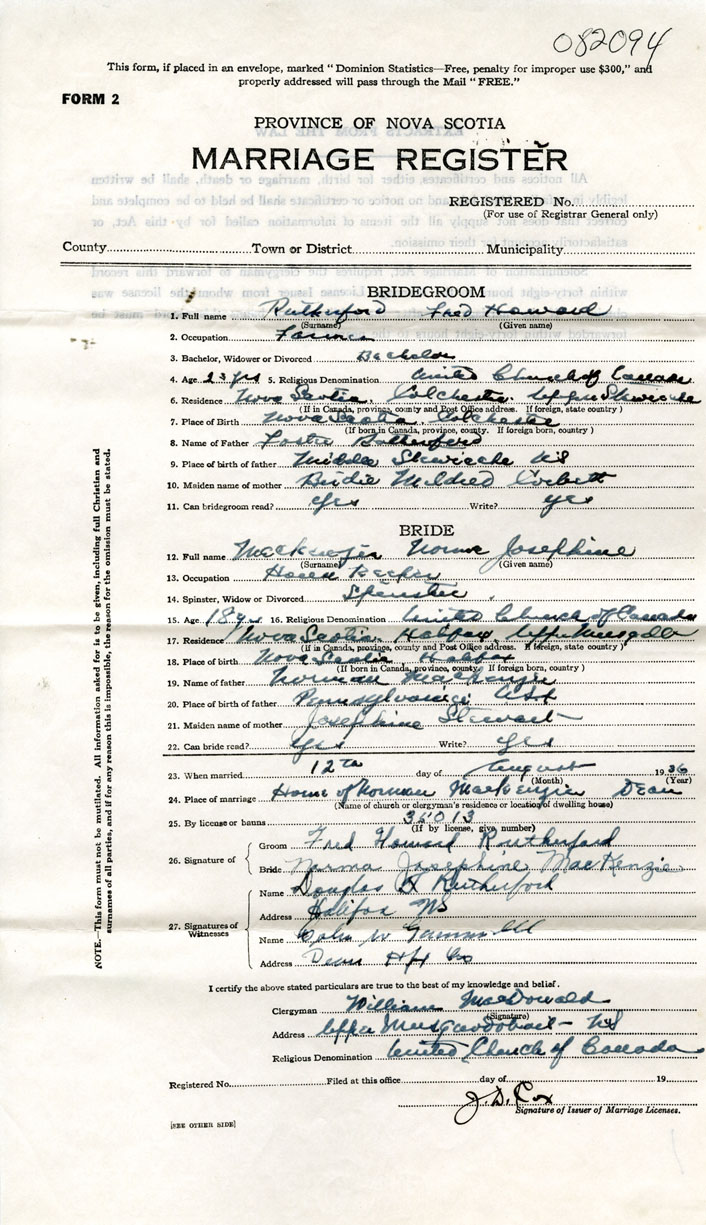 082094
This form, if placed in an envelope, marked "Dominion Statistics—Free, penalty for improper use $300," and
properly addressed will pass through the Mail "FREE."
FORM 2
PROVINCE OF NOVA SCOTIA
MARRIAGE REGISTER
REGISTERED No.
(For use of Registrar General only)
County Town or District Municipality
BRIDEGROOM
1. Full name Rutherford Fred Howard
(Surname) (Given name)
2. Occupation Farmer
3. Bachelor, Widower or Divorced Bachelor
4. Age 23 yrs 5. Religious Denomination United Church of Canada
6. Residence Nova Scotia, Colchester, Upper Stewiacke
(If in Canada, province, county and Post Office address. If foreign, state country )
7. Place of Birth Nova Scotia, Colchester
(If born in Canada, province, county. If foreign born, country )
8. Name of Father Foster Rutherford
9. Place of birth of father Middle Stewiacke NS
10. Maiden name of mother Birdie Mildred Corbett
11. Can bridegroom read? yes Write? yes
BRIDE
12. Full name MacKenzie Norma Josephine
(Surname) (Given name)
13. Occupation House Keeper
14. Spinster, Widow or Divorced Spinster
15. Age 18 yrs 16. Religious Denomination United Church of Canada
17. Residence Nova Scotia, Halifax, Upper
(If in Canada, province, county and Post Office address. If foreign, state country )
18. Place of birth Nova Scotia Halifax
(If born in Canada, province, county. If foreign born, country )
19. Name of father Norman MacKenzie
20. Place of birth of father Pennsylvania USA
21. Maiden name of mother Josephine Stewart
22. Can bride read? yes Write? yes
23. When married 12th day of August 1936
(Month) (Year)
24. Place of marriage Home of Norman MacKenzie Dean
(Name of church or clergyman's residence or location of dwelling house)
25. By license or banns 36013
(If by license, give number)
26. Signature of
Groom Fred Howard Rutherford
Bride Norma Josephine MacKenzie
27. Signatures of Witnesses
Name Douglas Rutherford
Address Halifax NS
Name W Gammell
Address Dean Hfx Co
I certify the above stated particulars are true to the best of my knowledge and belief.
Clergyman William MacDonald
(Signature)
Address Upper Musquodoboit - NS
Religious Denomination United Church of Canada
Registered No. Filed at this office day of 19
J. D. Cox
Signature of Issuer of Marriage Licenses.
[SEE OTHER SIDE]
NOTE.—This form must not be mutilated. All information asked for is to be given, including full Christian and
surnames of all parties, and if for any reason this is impossible, the reason for the omission must be stated.